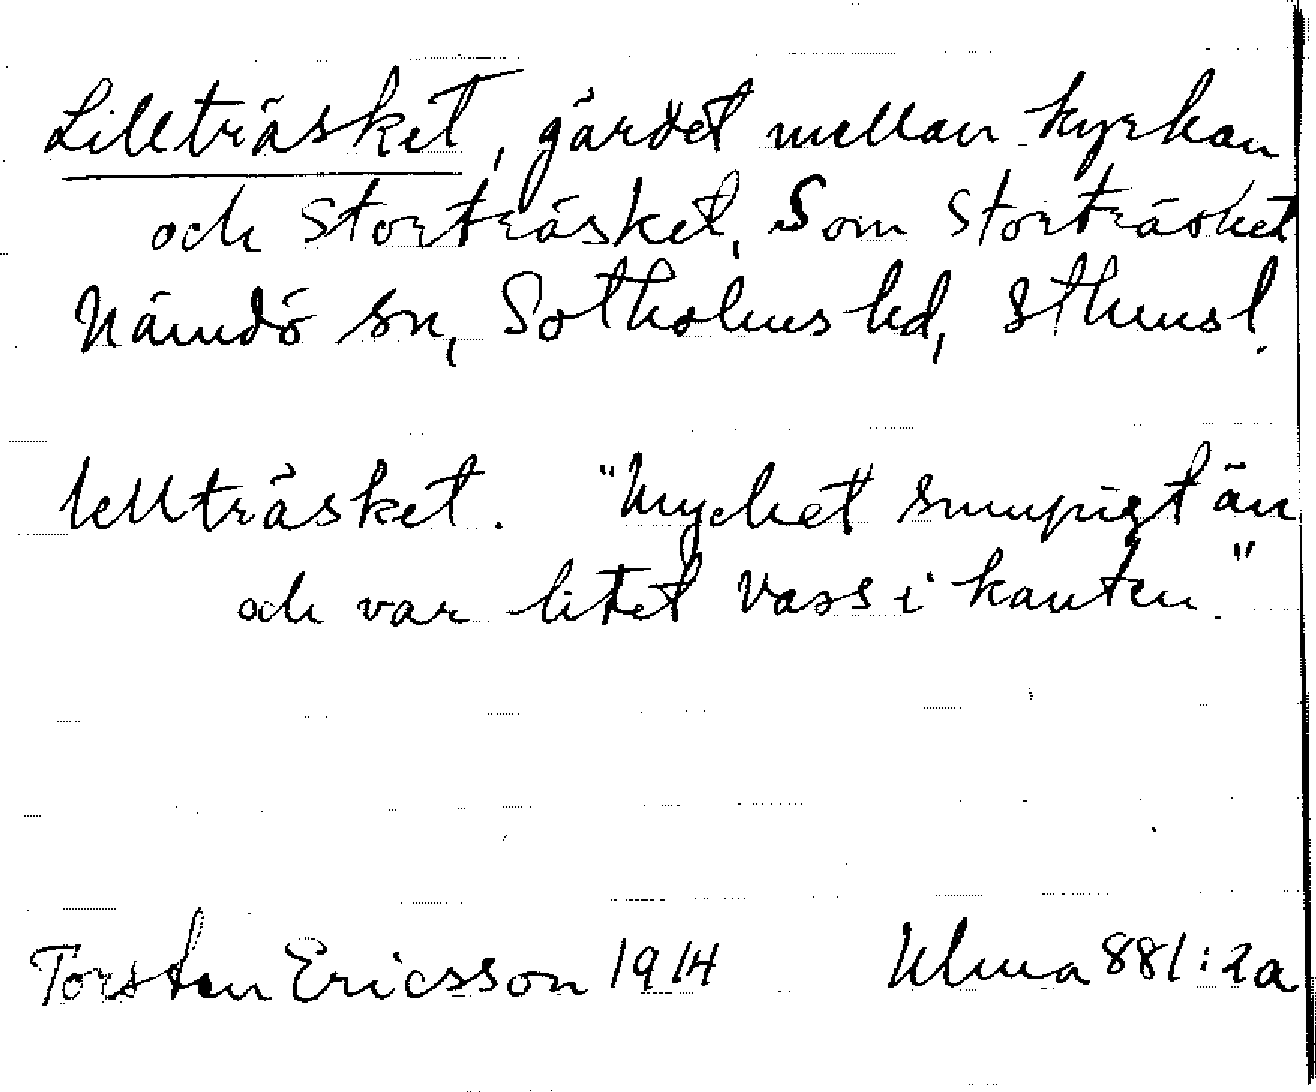 Lillträsket, gärdet mellan kyrkan
och Storträsket, Som Storträsket
Nämdö sn, Sotholms hd, Sthmsl.
lellträsket. "Mycket sumpigt än
och var litet vass i kanten."
Torsten Ericsson 1914 Ulma 881:2a